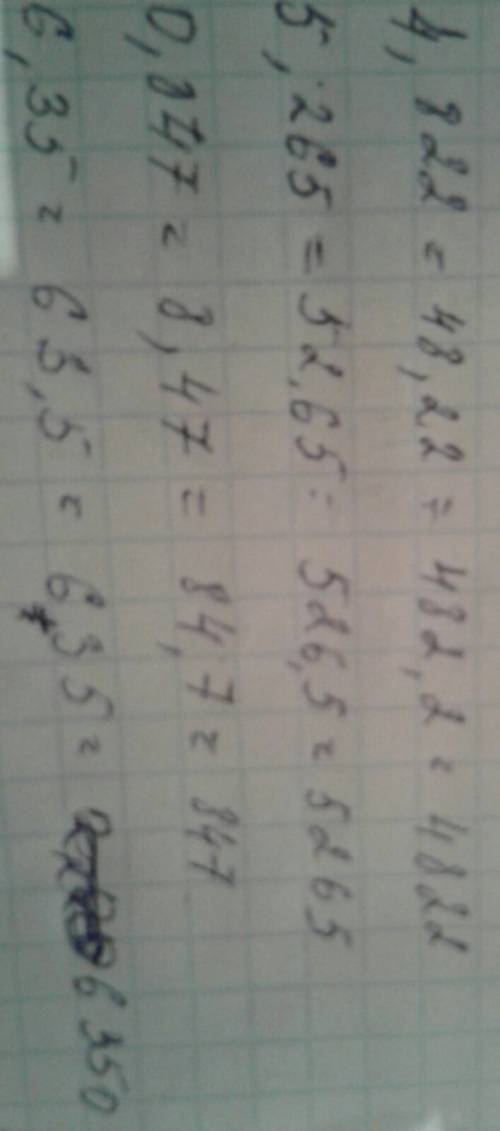 4,822 = 48,22 = 482,2 = 4822
5,265 = 52,65 = 526,5 = 5265
0,847 = 8,47 = 84,7 = 847
6,35 = 63,5 = 635 = 6350